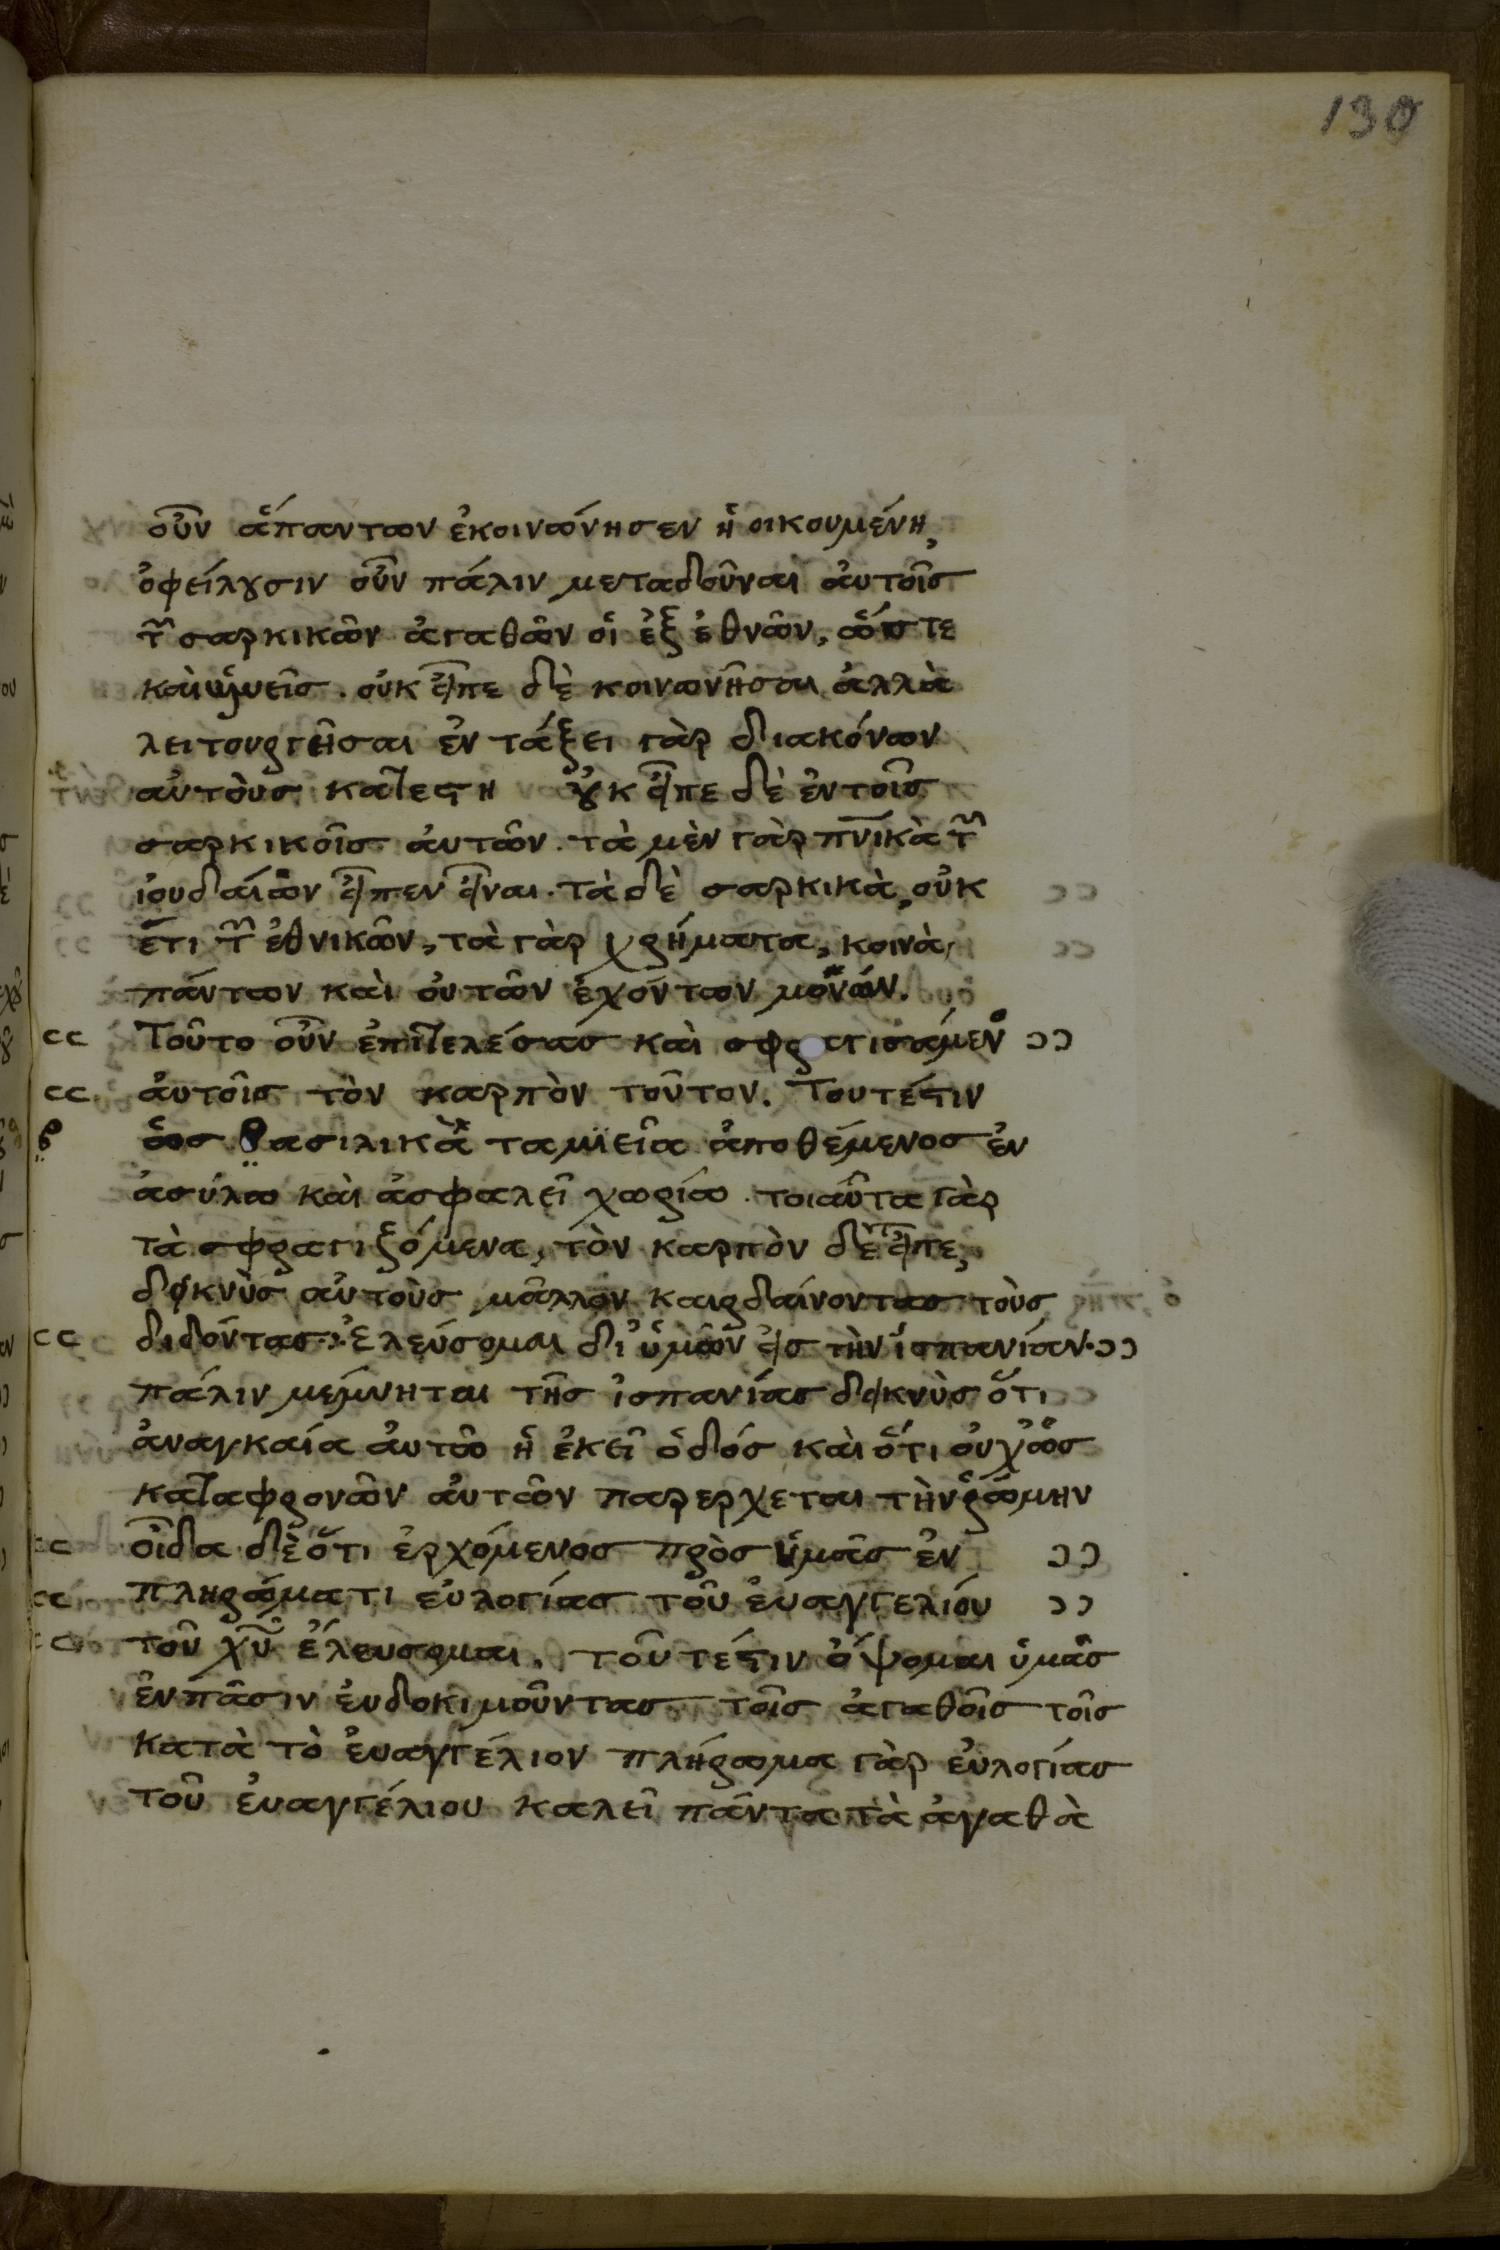 130
οὖν ἁπάντων ἐκοινώνησεν ἡ οἰκουμένη,
ὀφείλουσιν οὖν πάλιν μεταδοῦναι αὐτοῖς
τῶν σαρκικῶν ἀγαθῶν οἱ ἐξ ἐθνῶν, ὥστε
καὶ ὑμεῖς. οὐκ εἶπε δὲ κοινωνῆσαι ἀλλὰ
λειτουργῆσαι ἐν τάξει γὰρ διακόνων
αὐτοὺς κατέστη οὐκ εἶπε δὲ ἐν τοῖς
σαρκικοῖς αὐτῶν. τὰ μὲν γὰρ πνικὰ τῶν
ἰουδαίων εἶπεν εἶναι. τὰ δὲ σαρκικὰ, οὐκ
ἔτι τῶν ἐθνικῶν, τὰ γὰρ χρήματα, κοινὰ,
πάντων καὶ οὐ τῶν ἐχόντων μόνων.
Τοῦτο οὖν ἐπιτελέσας καὶ σφραγισάμενος
αὐτοῖς τὸν καρπὸν τοῦτον. Τουτέστιν
ὡς βασιλικὰ ταμιεῖα ἀποθέμενος ἐν
ἀσύλω καὶ ἀσφαλεῖ χωρίω. τοιαῦτα γὰρ
τὰ σφραγιζόμενα, τὸν καρπὸν δὲ εἶπε,
δεικνὺς αὐτοὺς μᾶλλον καιρδαίνοντας τοὺς
διδόντας: Ἐλεύσομαι δι' ὑμῶν εἰς τὴν ἱσπανίαν.
πάλιν μέμνηται τῆς ἰσπανίας δεικνὺς ὅτι
ἀναγκαία αὐτῶ ἡ ἐκεῖ ὁδός καὶ ὅτι οὐχ ὡς
καταφρονῶν αὐτῶν παρερχεται τὴν ῥώμην
οἶδα δὲ ὅτι ἐρχόμενος πρὸς ὑμᾶς ἐν
πληρώματι εὐλογίας τοῦ εὐαγγελίου
τοῦ χῦ ἐλευσομαι. τουτέστιν ὄψομαι ὑμᾶς
ἐν πᾶσιν εὐδοκιμοῦντας τοῖς ἀγαθοῖς τοῖς
κατὰ τὸ εὐαγγέλιον πλήρωμα γὰρ εὐλογίας
τοῦ εὐαγγέλιου καλεῖ πάντα τὰ ἀγαθὰ